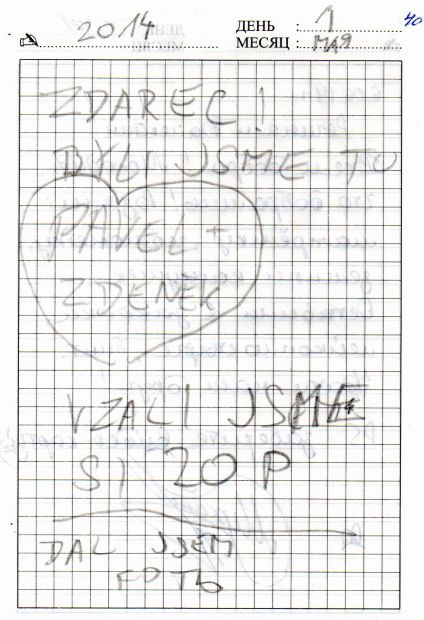 2014
ДЕНЬ : 1
МЕСЯЦ : МАЯ
40
ZDAREC!
BYLI JSME TU
PAVEL +
ZDENĚK
VZALI JSME
SI 20 P
DAL JSEM
FOTO